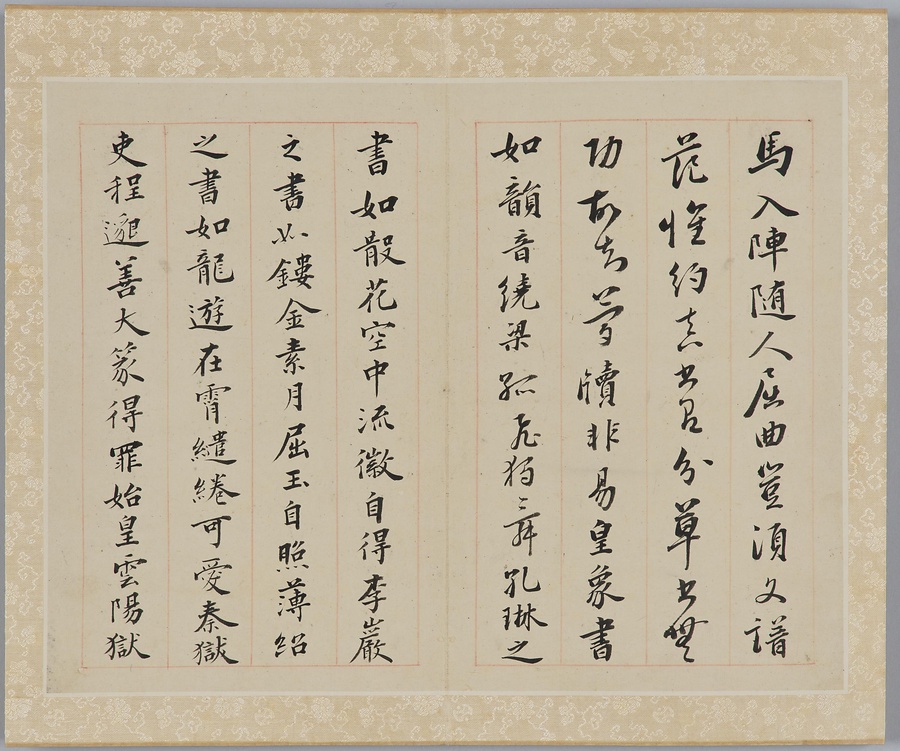 馬入陣随人屈曲豈須文譜
范惟約真書有分草書無
功故知簡牘非易皇象書
如韻音繞梁孤飛獨舞孔琳之
書如散花空中流徽自得李巖
之書如鏤金素月屈玉自照薄紹
之書如龍遊在霄繾綣可愛秦獄
吏程邈善大篆得罪始皇雲陽獄